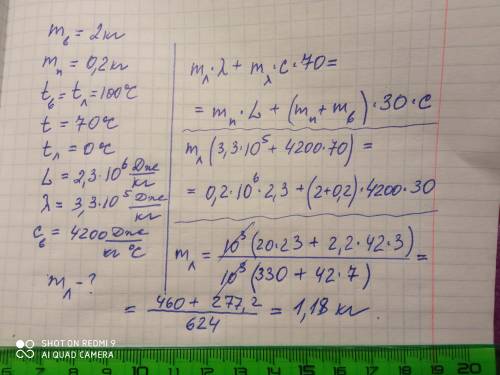 m_в = 2кг
m_п = 0,2кг
t_в = t_л = 100°C
t = 70°C
t_л = 0°C
L = 2,3·10⁶ Дж/кг
λ = 3,3·10⁵ Дж/кг
c_в = 4200 Дж/кг °C
m_л - ?
m_л·λ + m_л·c·70 =
= m_п·L + (m_п + m_в)·30·c
m_л(3,3·10⁵ + 4200·70) =
= 0,2·10⁶·2,3 + (2+0,2)·4200·30
m_л = 10³(20·23 + 2,2·42·3) / 10³(330 + 42·7) =
= (460 + 277,2) / 624 = 1,18 кг
SHOT ON REDMI 9
AI QUAD CAMERA
0 1 2 3 4 5 6 7 8 9 10 11 12 13 14 15 16 17 18 19 20